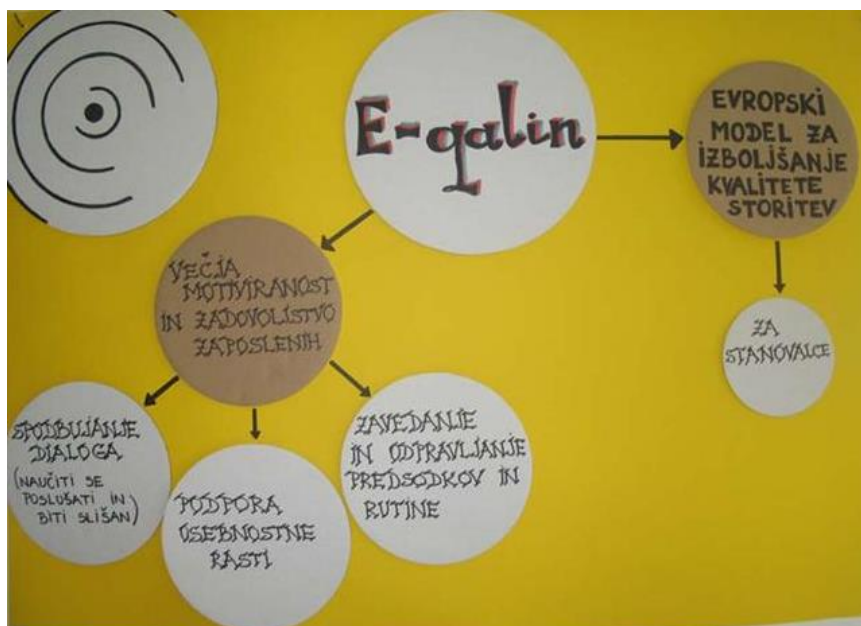 E-qalin
EVROPSKI
MODEL ZA
IZBOLJŠANJE
KVALITETE
STORITEV
ZA
STANOVALCE
VEČJA
MOTIVIRANOST
IN ZADOVOLJSTVO
ZAPOSLENIH
SPODBUJANJE
DIALOGA
(NAUČITI SE
POSLUŠATI IN
BITI SLIŠAN)
PODPORA
OSEBNOSTNE
RASTI
ZAVEDANJE
IN ODPRAVLJANJE
PREDSODKOV IN
RUTINE